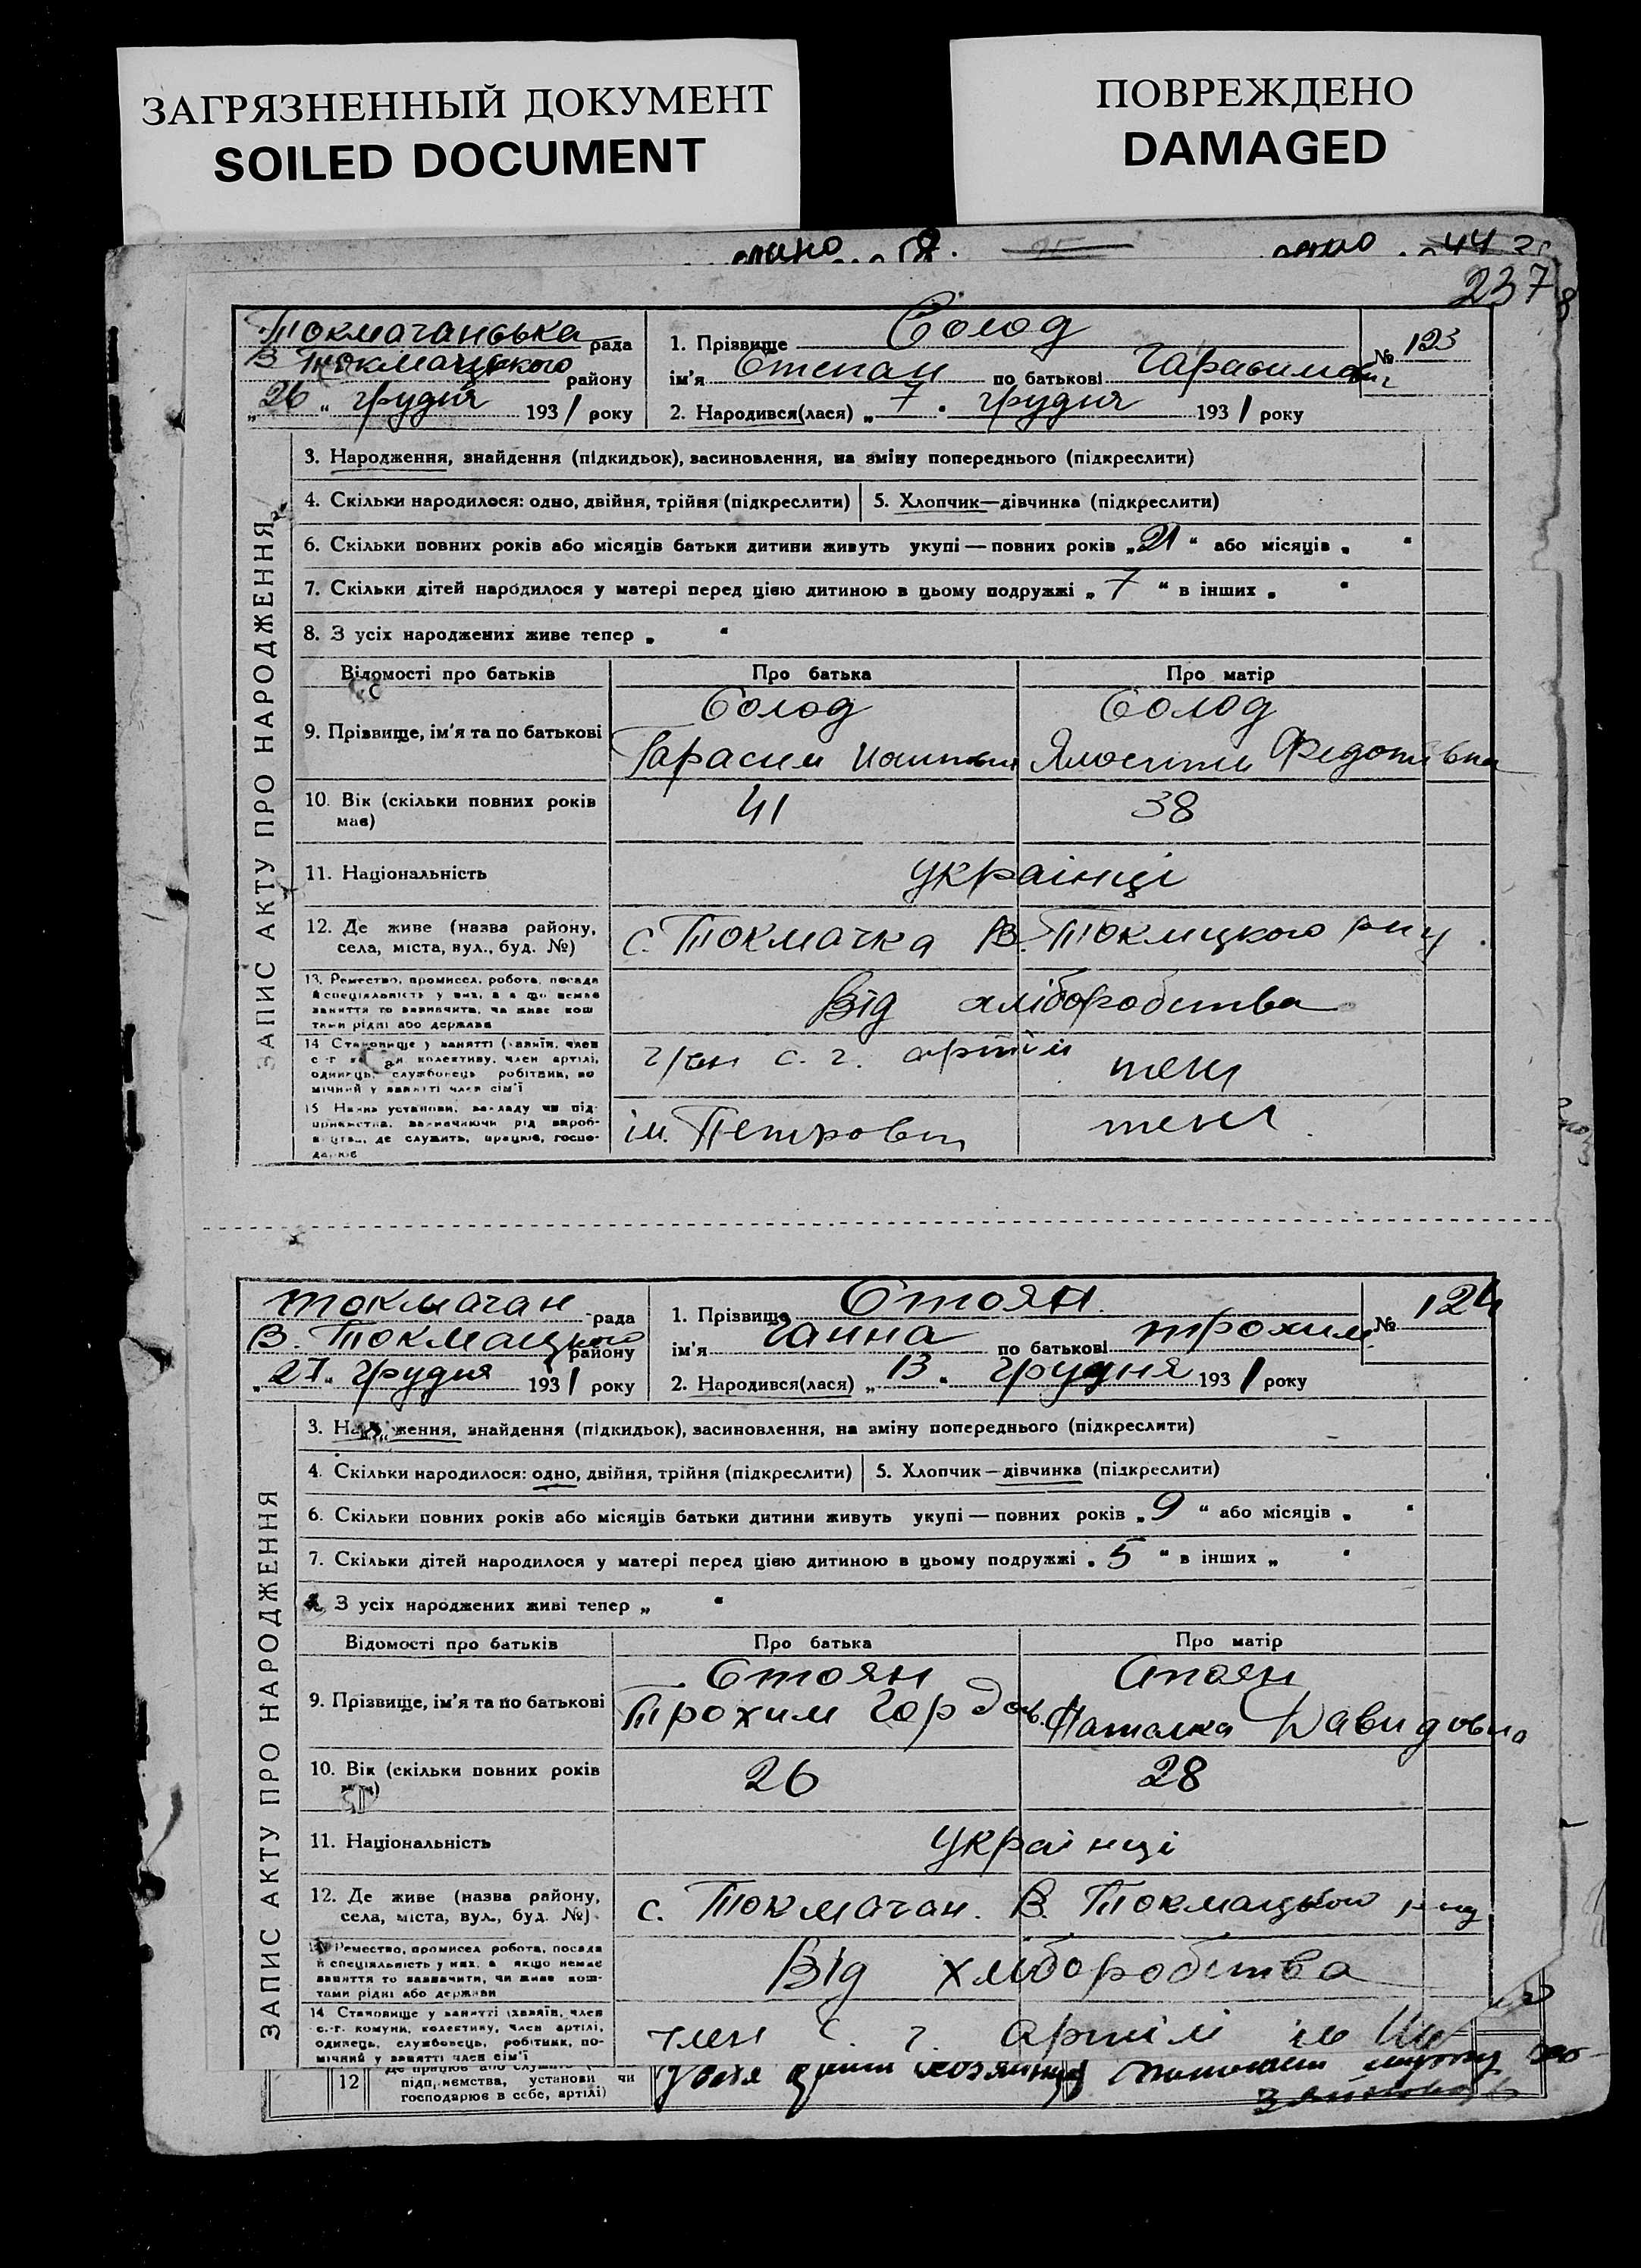 ЗАГРЯЗНЕННЫЙ ДОКУМЕНТ
SOILED DOCUMENT
ПОВРЕЖДЕНО
DAMAGED
237
Токмачанська рада
В Токмацького району
„26“ грудня 1931 року
1. Прізвище Солод
ім'я Степан по батькові Гарасимович
№ 123
2. Народився(лася) „7“ грудня 1931 року
ЗАПИС АКТУ ПРО НАРОДЖЕННЯ
3. Народження, знайдення (підкидьок), засиновлення, на зміну попереднього (підкреслити)
4. Скільки народилося: одно, двійня, трійня (підкреслити) 5. Хлопчик—дівчинка (підкреслити)
6. Скільки повних років або місяців батьки дитини живуть укупі — повних років „21“ або місяців „ “
7. Скільки дітей народилося у матері перед цією дитиною в цьому подружжі „7“ в інших „ “
8. З усіх народжених живе тепер „ “
Відомості про батьків Про батька Про матір
9. Прізвище, ім'я та по батькові
Солод Солод
Гарасим Федотівна
10. Вік (скільки повних років має) 41 38
11. Національність українці
12. Де живе (назва району, села, міста, вул., буд. №)
с. Токмачка В. Токмцкого р-ну
13. Ремество, промисел, робота, посада й спеціяльність у них, а якщо немає заняття то зазначити, чи живе кош тами рідні або держава
Від хліборобства
14. Становище у занятті (хазяїн, член с.-г. колективу, член артілі, одинець, службовець, робітник, по мічний у занятті член сім'ї
член с. г. артіли теж
15. Назва установи, закладу чи під- приємства, зазначаючи рід вироб- ництва, де служить, працює, госпо- дарює
ім. Петровск теж
токмачан рада
В. Токмацького району
„27“ грудня 1931 року
1. Прізвище Стоян
ім'я Ганна по батькові трохим
№ 124
2. Народився(лася) „13“ грудня 1931 року
ЗАПИС АКТУ ПРО НАРОДЖЕННЯ
3. Народження, знайдення (підкидьок), засиновлення, на зміну попереднього (підкреслити)
4. Скільки народилося: одно, двійня, трійня (підкреслити) 5. Хлопчик—дівчинка (підкреслити)
6. Скільки повних років або місяців батьки дитини живуть укупі — повних років „9“ або місяців „ “
7. Скільки дітей народилося у матері перед цією дитиною в цьому подружжі „5“ в інших „ “
З усіх народжених живі тепер „ “
Відомості про батьків Про батька Про матір
9. Прізвище, ім'я та по батькові
Стоян Стоян
Трохим Гордов. Наталка Давидовна
10. Вік (скільки повних років 26 28
11. Національність українці
12. Де живе (назва району, села, міста, вул., буд. №)
с. Токмачан. В. Токмацького р-ну
Ремество, промисел робота, посада й спеціяльність у них, а якщо немає заняття то зазначити, чи живе кош- тами рідні або держави
Від хліборобства
14. Становище у занятті (хазяїн, член с.-г. комуни, колективу, член артілі, одинець, службовець, робітник, по- мічний у занятті член сім'ї
член с. г. артілі
12 підприємства, установи чи
господарює в себе, артілі)